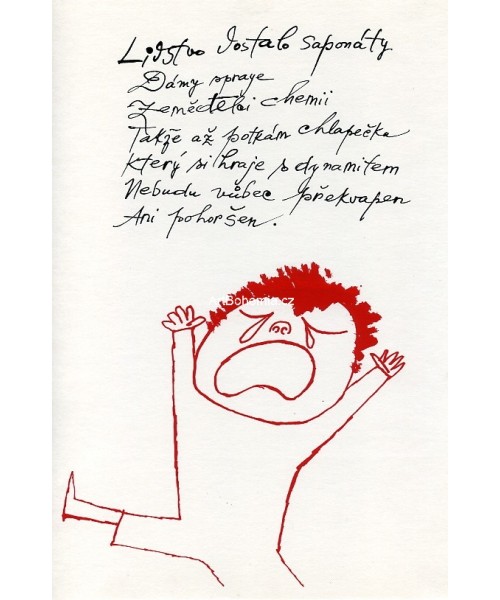 Lidstvo dostalo saponáty
Dámy spraye
Zemědělci chemii
Takže až potkám chlapečka
Který si hraje s dynamitem
Nebudu vůbec překvapen
Ani pohoršen.
ArtBohemia.cz